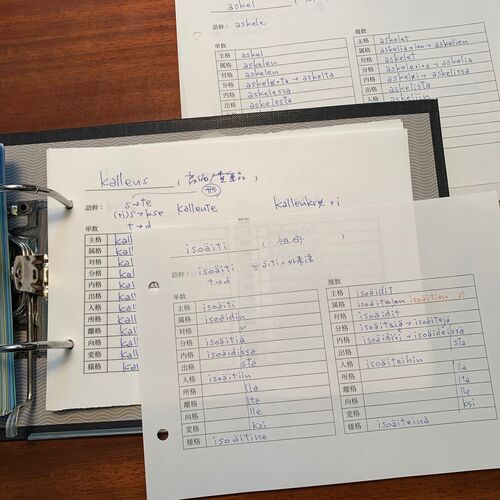 askel
語幹： askele
単数
主格 askel
属格 askelen
対格 askelen
分格 askelta → askelta
内格 askelessa
出格 askelesta
複数
主格 askelet
属格 → askelien
対格 askelet
分格 → askelia
内格 → askelissa
出格 askelista
入格 askeliin
kalleus （ 高価／貴重品 ）
語幹： s→te kalleute
t→d
単数
主格 kal
属格 kal
対格 kal
分格 kal
内格 kal
出格 kal
入格 kal
所格 kal
離格 kal
向格 kal
変格 kal
様格 kal
isoäiti （ 祖母 ）
語幹： isoäiti ※äiti=外来語
t→d
単数
主格 isoäiti
属格 isoäidin
対格 n
分格 isoäitiä
内格 isoäidissä
出格 stä
入格 isoäitiin
所格 llä
離格 ltä
向格 lle
変格 ksi
様格 isoäitinä
複数
主格 isoäidit
属格 isoäitien
対格 isoäidit
分格 → isoäitejä
内格 → isoäideissä
出格 stä
入格 isoäiteihin
所格 llä
離格 ltä
向格 lle
変格 ksi
様格 isoäiteinä